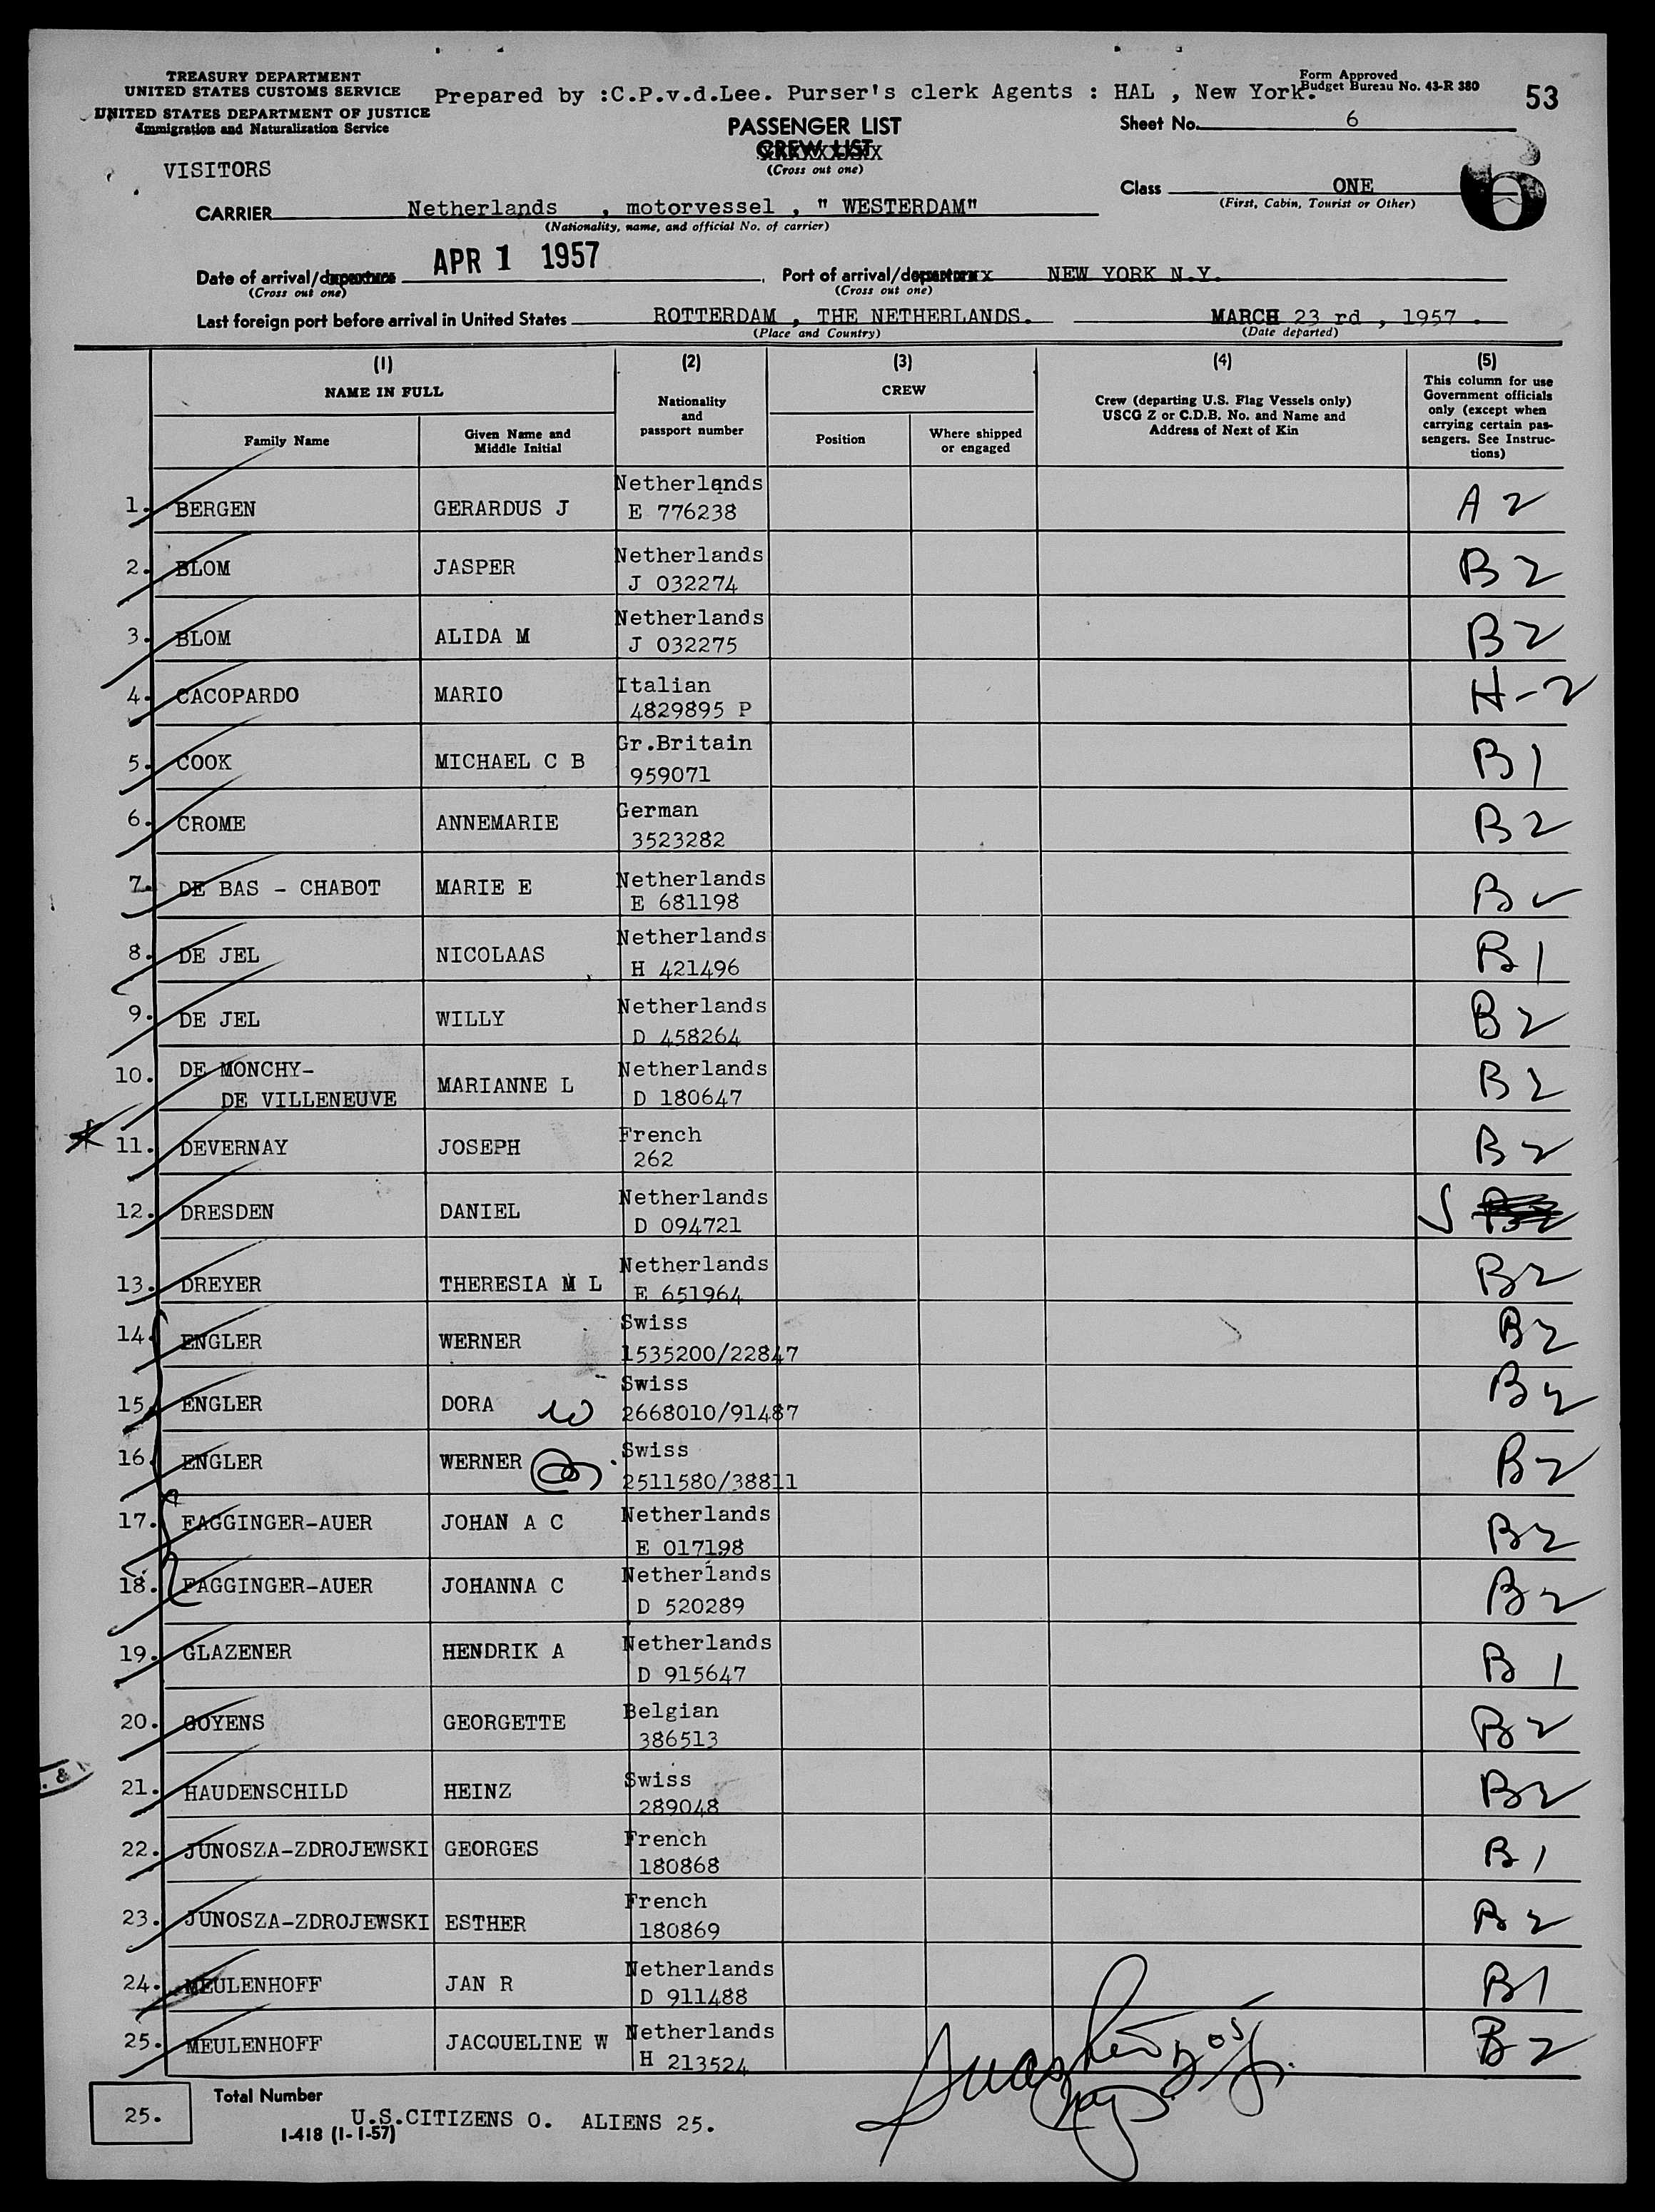 TREASURY DEPARTMENT
UNITED STATES CUSTOMS SERVICE
UNITED STATES DEPARTMENT OF JUSTICE
Immigration and Naturalization Service
Prepared by :C.P.v.d.Lee. Purser's clerk Agents : HAL , New York.
Form Approved
Budget Bureau No. 43-R 380
53
PASSENGER LIST
CREW LIST
(Cross out one)
Sheet No. 6
6
VISITORS
Class ONE
(First, Cabin, Tourist or Other)
CARRIER Netherlands , motorvessel , " WESTERDAM"
(Nationality, name, and official No. of carrier)
Date of arrival/departure APR 1 1957
(Cross out one)
Port of arrival/departure NEW YORK N.Y.
(Cross out one)
Last foreign port before arrival in United States ROTTERDAM , THE NETHERLANDS. MARCH 23 rd , 1957 .
(Place and Country) (Date departed)
(1) (2) (3) (4) (5)
NAME IN FULL
Family Name
Given Name and
Middle Initial
Nationality
and
passport number
CREW
Position
Where shipped
or engaged
Crew (departing U.S. Flag Vessels only)
USCG Z or C.D.B. No. and Name and
Address of Next of Kin
This column for use
Government officials
only (except when
carrying certain pas-
sengers. See Instruc-
tions)
1. BERGEN GERARDUS J Netherlands A 2
E 776238
2. BLOM JASPER Netherlands B 2
J 032274
3. BLOM ALIDA M Netherlands B 2
J 032275
4. CACOPARDO MARIO Italian H-2
4829895 P
5. COOK MICHAEL C B Gr.Britain B 1
959071
6. CROME ANNEMARIE German B 2
3523282
7. DE BAS - CHABOT MARIE E Netherlands B
E 681198
8. DE JEL NICOLAAS Netherlands B 1
H 421496
9. DE JEL WILLY Netherlands B 2
D 458264
10. DE MONCHY-
DE VILLENEUVE MARIANNE L Netherlands B 2
D 180647
11. DEVERNAY JOSEPH French B 2
262
12. DRESDEN DANIEL Netherlands
D 094721
13. DREYER THERESIA M L Netherlands B 2
E 651964
14. ENGLER WERNER Swiss B 2
1535200/22847
15. ENGLER DORA Swiss B 2
2668010/91487
16. ENGLER WERNER Swiss B 2
2511580/38811
17. FAGGINGER-AUER JOHAN A C Netherlands B 2
E 017198
18. FAGGINGER-AUER JOHANNA C Netherlands B 2
D 520289
19. GLAZENER HENDRIK A Netherlands B 1
D 915647
20. GOYENS GEORGETTE Belgian B 2
386513
21. HAUDENSCHILD HEINZ Swiss B 2
289048
22. JUNOSZA-ZDROJEWSKI GEORGES French B 1
180868
23. JUNOSZA-ZDROJEWSKI ESTHER French B 2
180869
24. MEULENHOFF JAN R Netherlands B 1
D 911488
25. MEULENHOFF JACQUELINE W Netherlands B 2
H 213524
25. Total Number
U.S.CITIZENS 0. ALIENS 25.
I-418 (1-1-57)